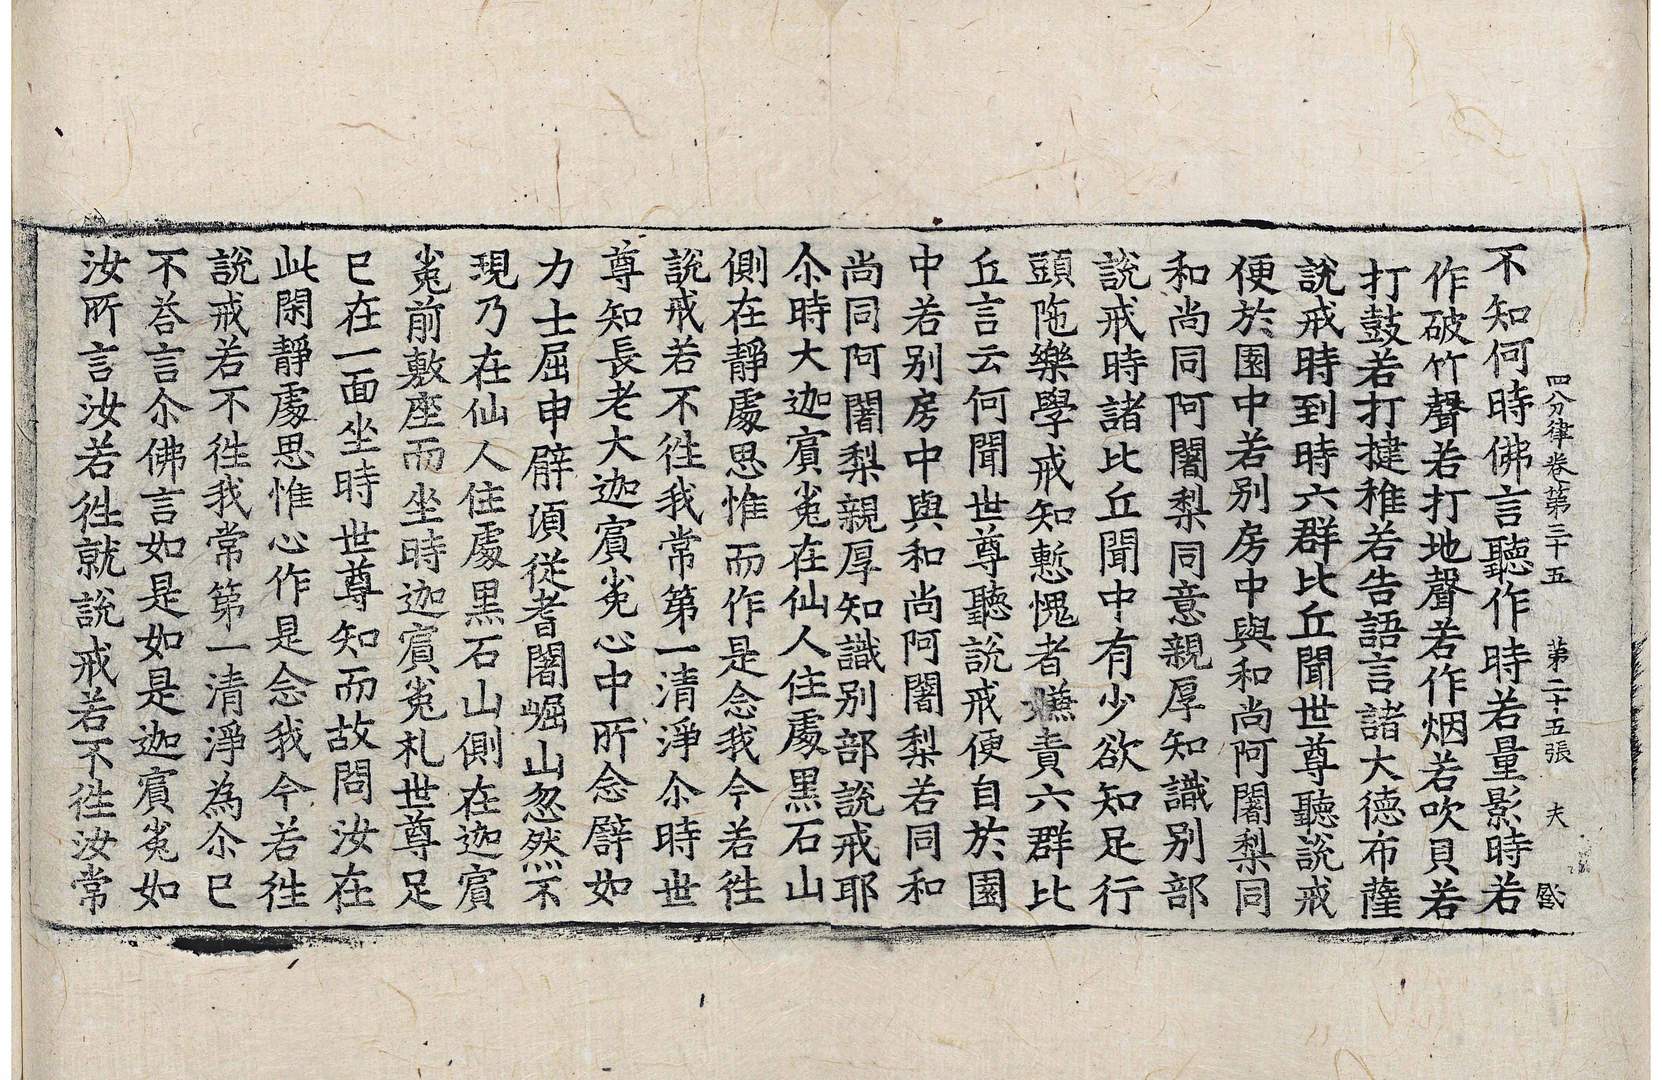 四分律卷第三十五 第二十五張 夫
不知何時佛言聽作時若量影時若
作破竹聲若打地聲若作烟若吹貝若
打鼓若打揵稚若告語言諸大德布薩
說戒時到時六群比丘聞世尊聽說戒
便於園中若別房中與和尚阿闍梨同
和尚同阿闍梨同意親厚知識別部
說戒時諸比丘聞中有少欲知足行
頭陁樂學戒知慙愧者嫌責六群比
丘言云何聞世尊聽說戒便自於園
中若別房中與和尚阿闍梨若同和
尚同阿闍梨親厚知識別部說戒耶
尒時大迦賓㝹在仙人住處黑石山
側在靜處思惟而作是念我今若徃
說戒若不徃我常第一清淨尒時世
尊知長老大迦賓㝹心中所念譬如
力士屈申臂頃從耆闍崛山忽然不
現乃在仙人住處黑石山側在迦賓
㝹前敷座而坐時迦賓㝹礼世尊足
已在一面坐時世尊知而故問汝在
此閑靜處思惟心作是念我今若徃
說戒若不徃我常第一清淨為尒已
不荅言尒佛言如是如是迦賓㝹如
汝所言汝若徃就說戒若不徃汝常